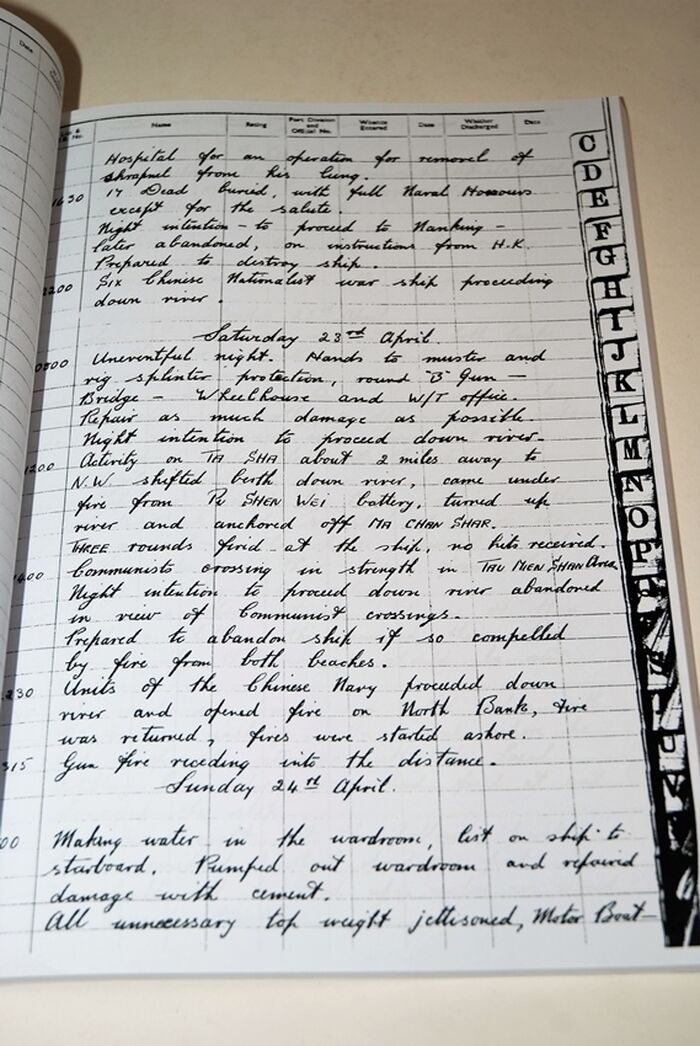 Date
& No.
Name
Rating
Port Division and Official No.
Whence Entered
Date
Whither Discharged
Date
Hospital for an operation for removal of
shrapnel from his lung.
1630 17 Dead buried, with full Naval Honours
except for the salute.
Night intention - to proceed to Nanking -
later abandoned, on instructions from H.K.
Prepared to destroy ship.
2200 Six Chinese Nationalist war ship proceeding
down river.
Saturday 23rd April.
0800 Uneventful night. Hands to muster and
rig splinter protection, round "B" Gun -
Bridge - Wheelhouse and W/T office.
Repair as much damage as possible.
Night intention to proceed down river.
1200 Activity on TA SHA about 2 miles away to
N.W. shifted berth down river, came under
fire from PU SHEN WEI battery, turned up
river and anchored off MA CHAN SHAR.
THREE rounds fired at the ship, no hits received.
1400 Communists crossing in strength in TAU MIEN SHAN Area
Night intention to proceed down river abandoned
in view of Communist crossings.
Prepared to abandon ship if so compelled
by fire from both beaches.
230 Units of the Chinese Navy proceeded down
river and opened fire on North Bank, fire
was returned, fires were started ashore.
315 Gun fire receding into the distance.
Sunday 24rd April.
00 Making water in the wardroom, list on ship to
starboard. Pumped out wardroom and repaired
damage with cement.
All unnecessary top weight jettisoned, Motor Boat -
C
D
E
F
G
H
I
J
K
L
M
N
O
P